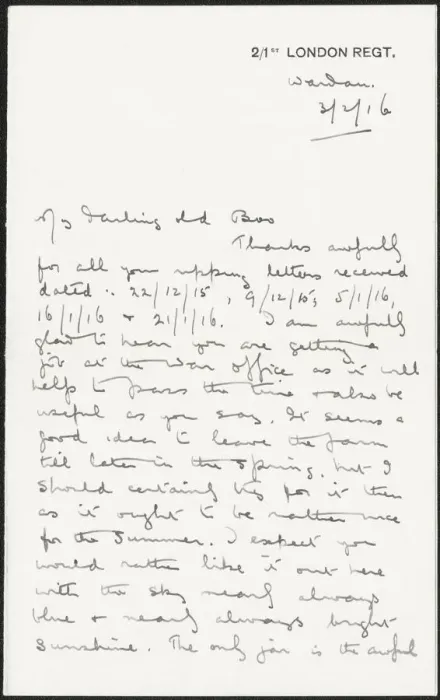 2/1ST LONDON REGT.
Wardan.
3/2/16
My Darling old Boo
Thanks awfully
for all your ripping letters received
dated :- 22/12/15, 9/12/15, 5/1/16,
16/1/16 + 21/1/16. I am awfully
glad to hear you are getting a
job at the War Office as it will
help to pass the time + also be
useful as you say. It seems a
good idea to leave the farm
till later in the spring, but I
should certainly try for it then
as it ought to be rather nice
for the summer. I expect you
would rather like it out here
with the sky nearly always
blue + nearly always bright
sunshine. The only jar is the awful